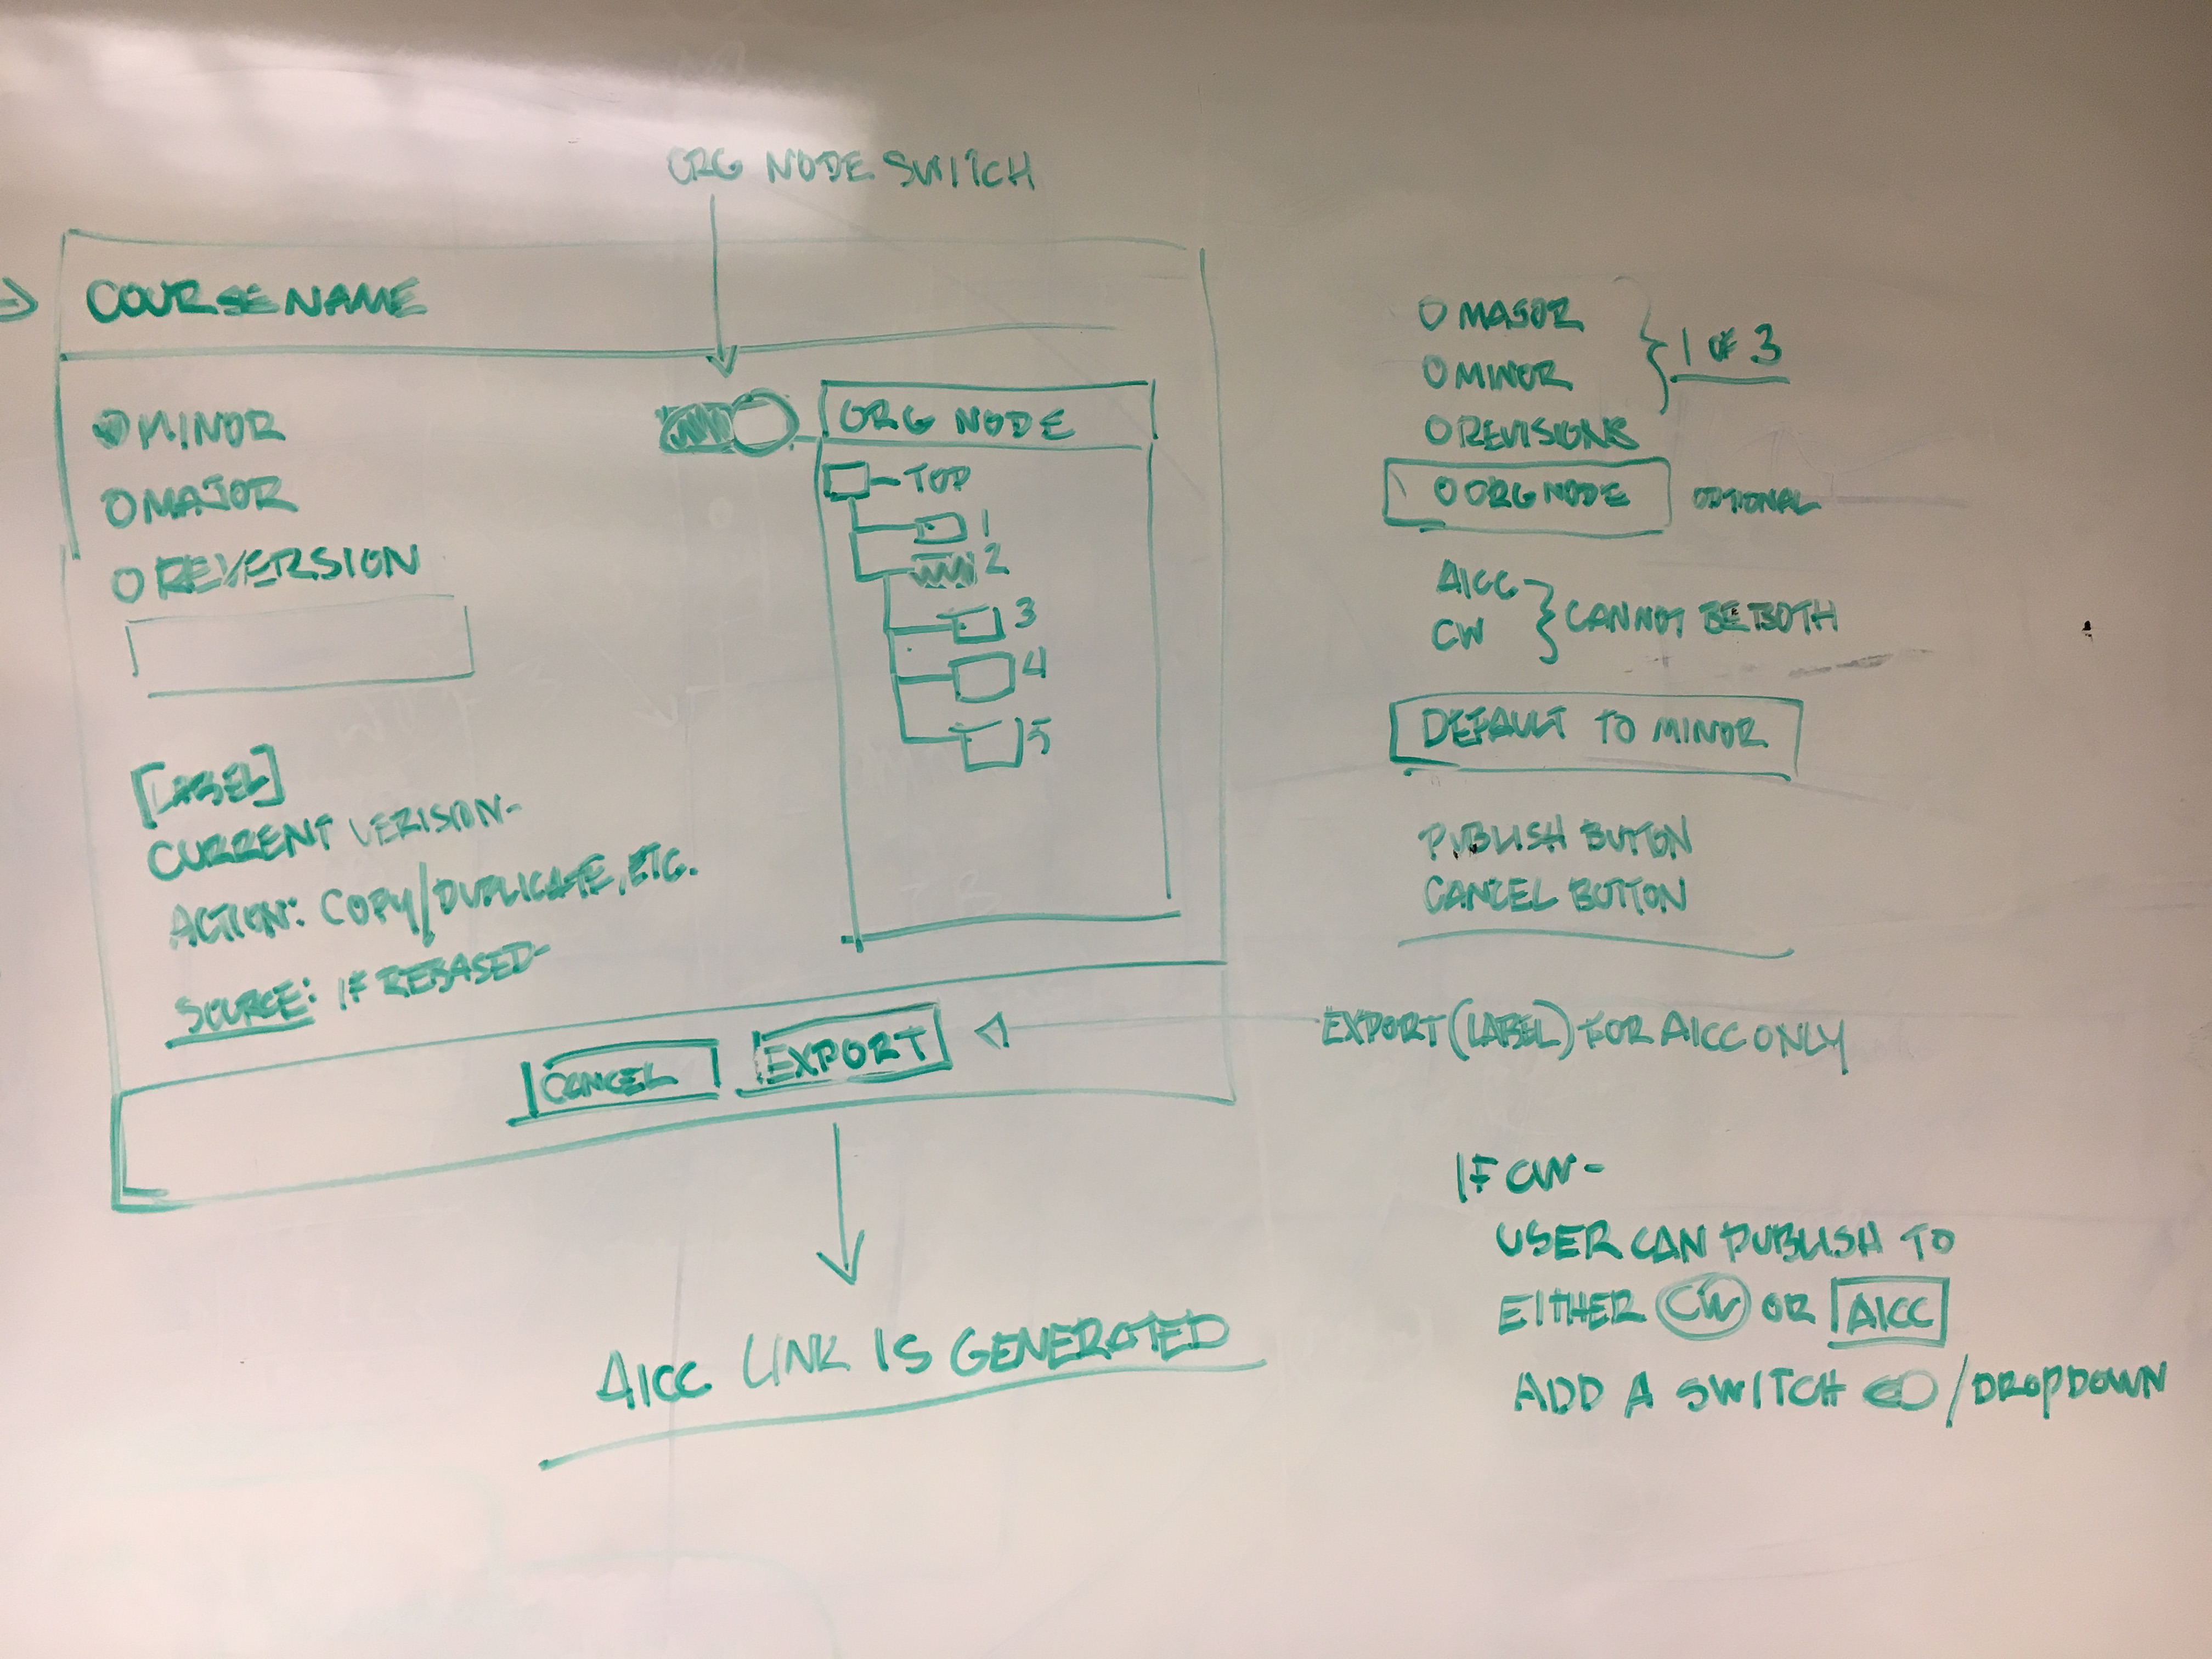 ORG NODE SWITCH
COURSE NAME
MINOR
MAJOR
REVERSION
[LABEL]
CURRENT VERISION-
ACTION: COPY/DUPLICATE, ETC.
SOURCE: IF REBASED-
ORG NODE
TOP
1
2
3
4
5
CANCEL EXPORT
AICC LINK IS GENERATED
MAJOR
MINOR
1 OF 3
REVISIONS
ORG NODE OPTIONAL
AICC
CW
CANNOT BE BOTH
DEFAULT TO MINOR
PUBLISH BUTTON
CANCEL BUTTON
EXPORT (LABEL) FOR AICC ONLY
IF CW-
USER CAN PUBLISH TO
EITHER CW OR AICC
ADD A SWITCH /DROPDOWN